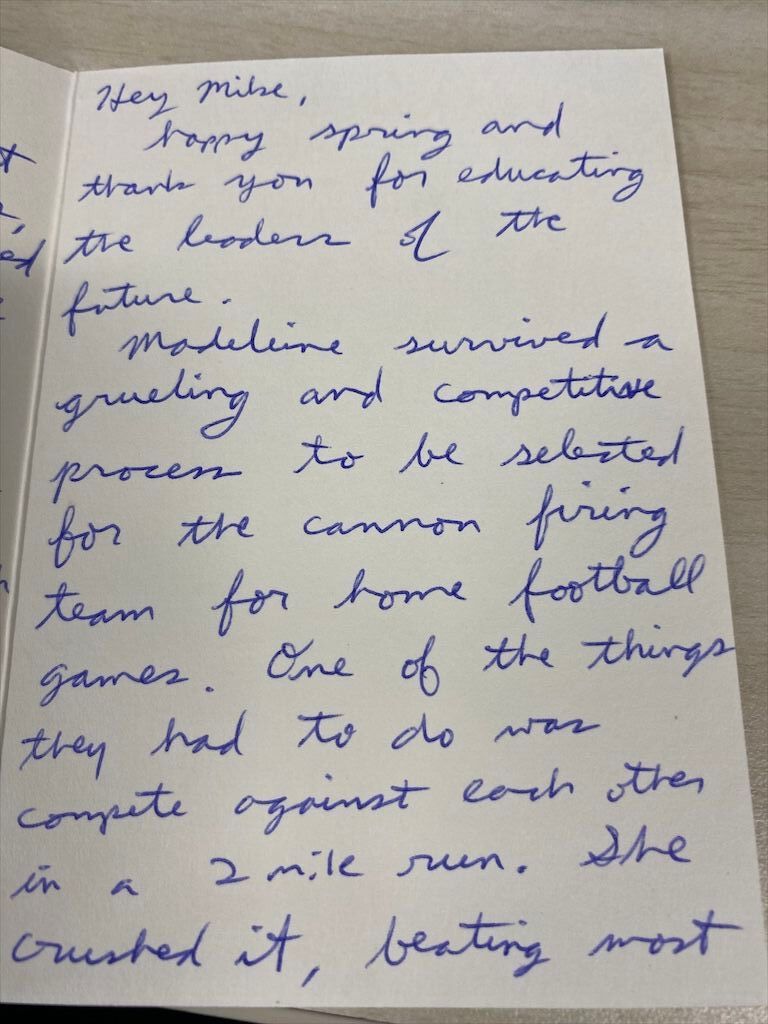 Hey Mike,
happy spring and
thank you for educating
the leaders of the
future.
Madeleine survived a
grueling and competitive
process to be selected
for the cannon firing
team for home football
games. One of the things
they had to do was
compete against each other
in a 2 mile run. She
crushed it, beating most